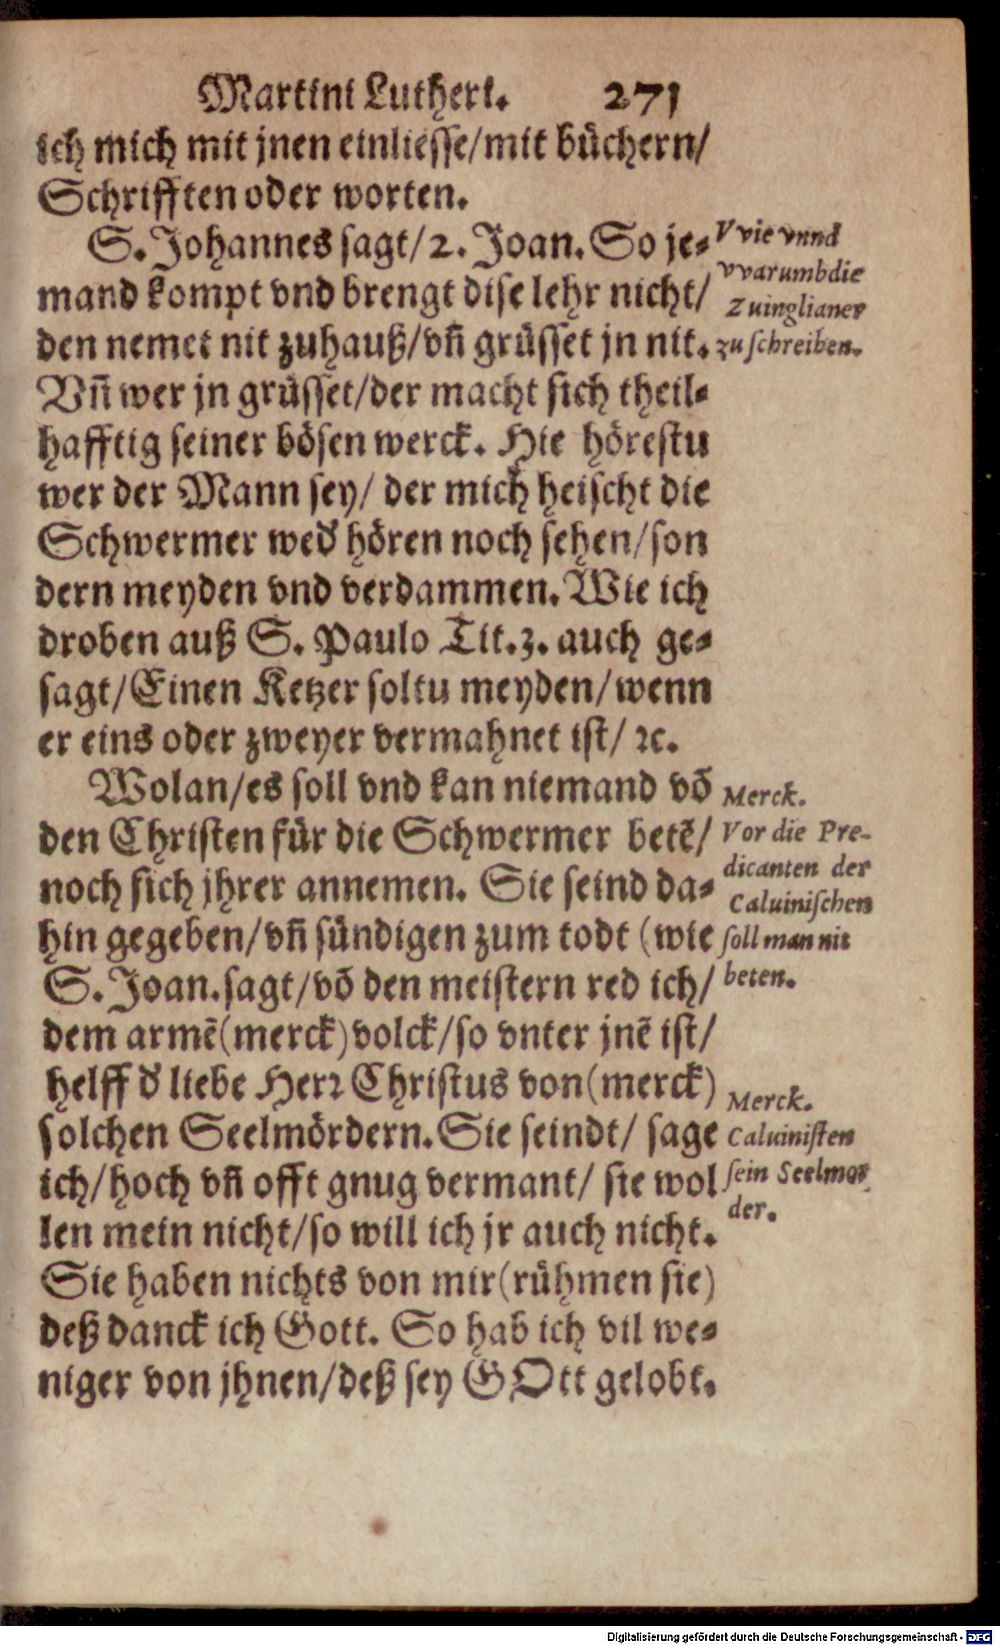 Martini Lutheri. 271
ich mich mit jnen einliesse/mit büchern/
Schrifften oder worten.
S. Johannes sagt/2. Joan. So je-
mand kompt vnd brengt dise lehr nicht/
den nemet nit zuhauß/vñ grüsset jn nit.
Vñ wer jn grüsset/der macht sich theil-
hafftig seiner bösen werck. Hie hörestu
wer der Mann sey/ der mich heischt die
Schwermer wed̕ hören noch sehen/son
dern meyden vnd verdammen. Wie ich
droben auß S. Paulo Tit.3. auch ge-
sagt/Einen Ketzer soltu meyden/wenn
er eins oder zweyer vermahnet ist/ ꝛc.
Wolan/es soll vnd kan niemand võ
den Christen für die Schwermer betẽ/
noch sich jhrer annemen. Sie seind da-
hin gegeben/vñ sündigen zum todt (wie
S. Joan.sagt/võ den meistern red ich/
dem armẽ(merck)volck/so vnter jnẽ ist/
helff d̕ liebe Herꝛ Christus von(merck)
solchen Seelmördern.Sie seindt/ sage
ich/hoch vñ offt gnug vermant/ sie wol
len mein nicht/so will ich jr auch nicht.
Sie haben nichts von mir(rühmen sie)
deß danck ich Gott. So hab ich vil we-
niger von jhnen/deß sey GOtt gelobt.
VVie vnnd
vvarumb die
Zuinglianer
zu schreiben.
Merck.
Vor die Pre-
dicanten der
Caluinischen
soll man nit
beten.
Merck.
Caluinisten
sein Seelmor
der.
Digitalisierung gefördert durch die Deutsche Forschungsgemeinschaft - DFG